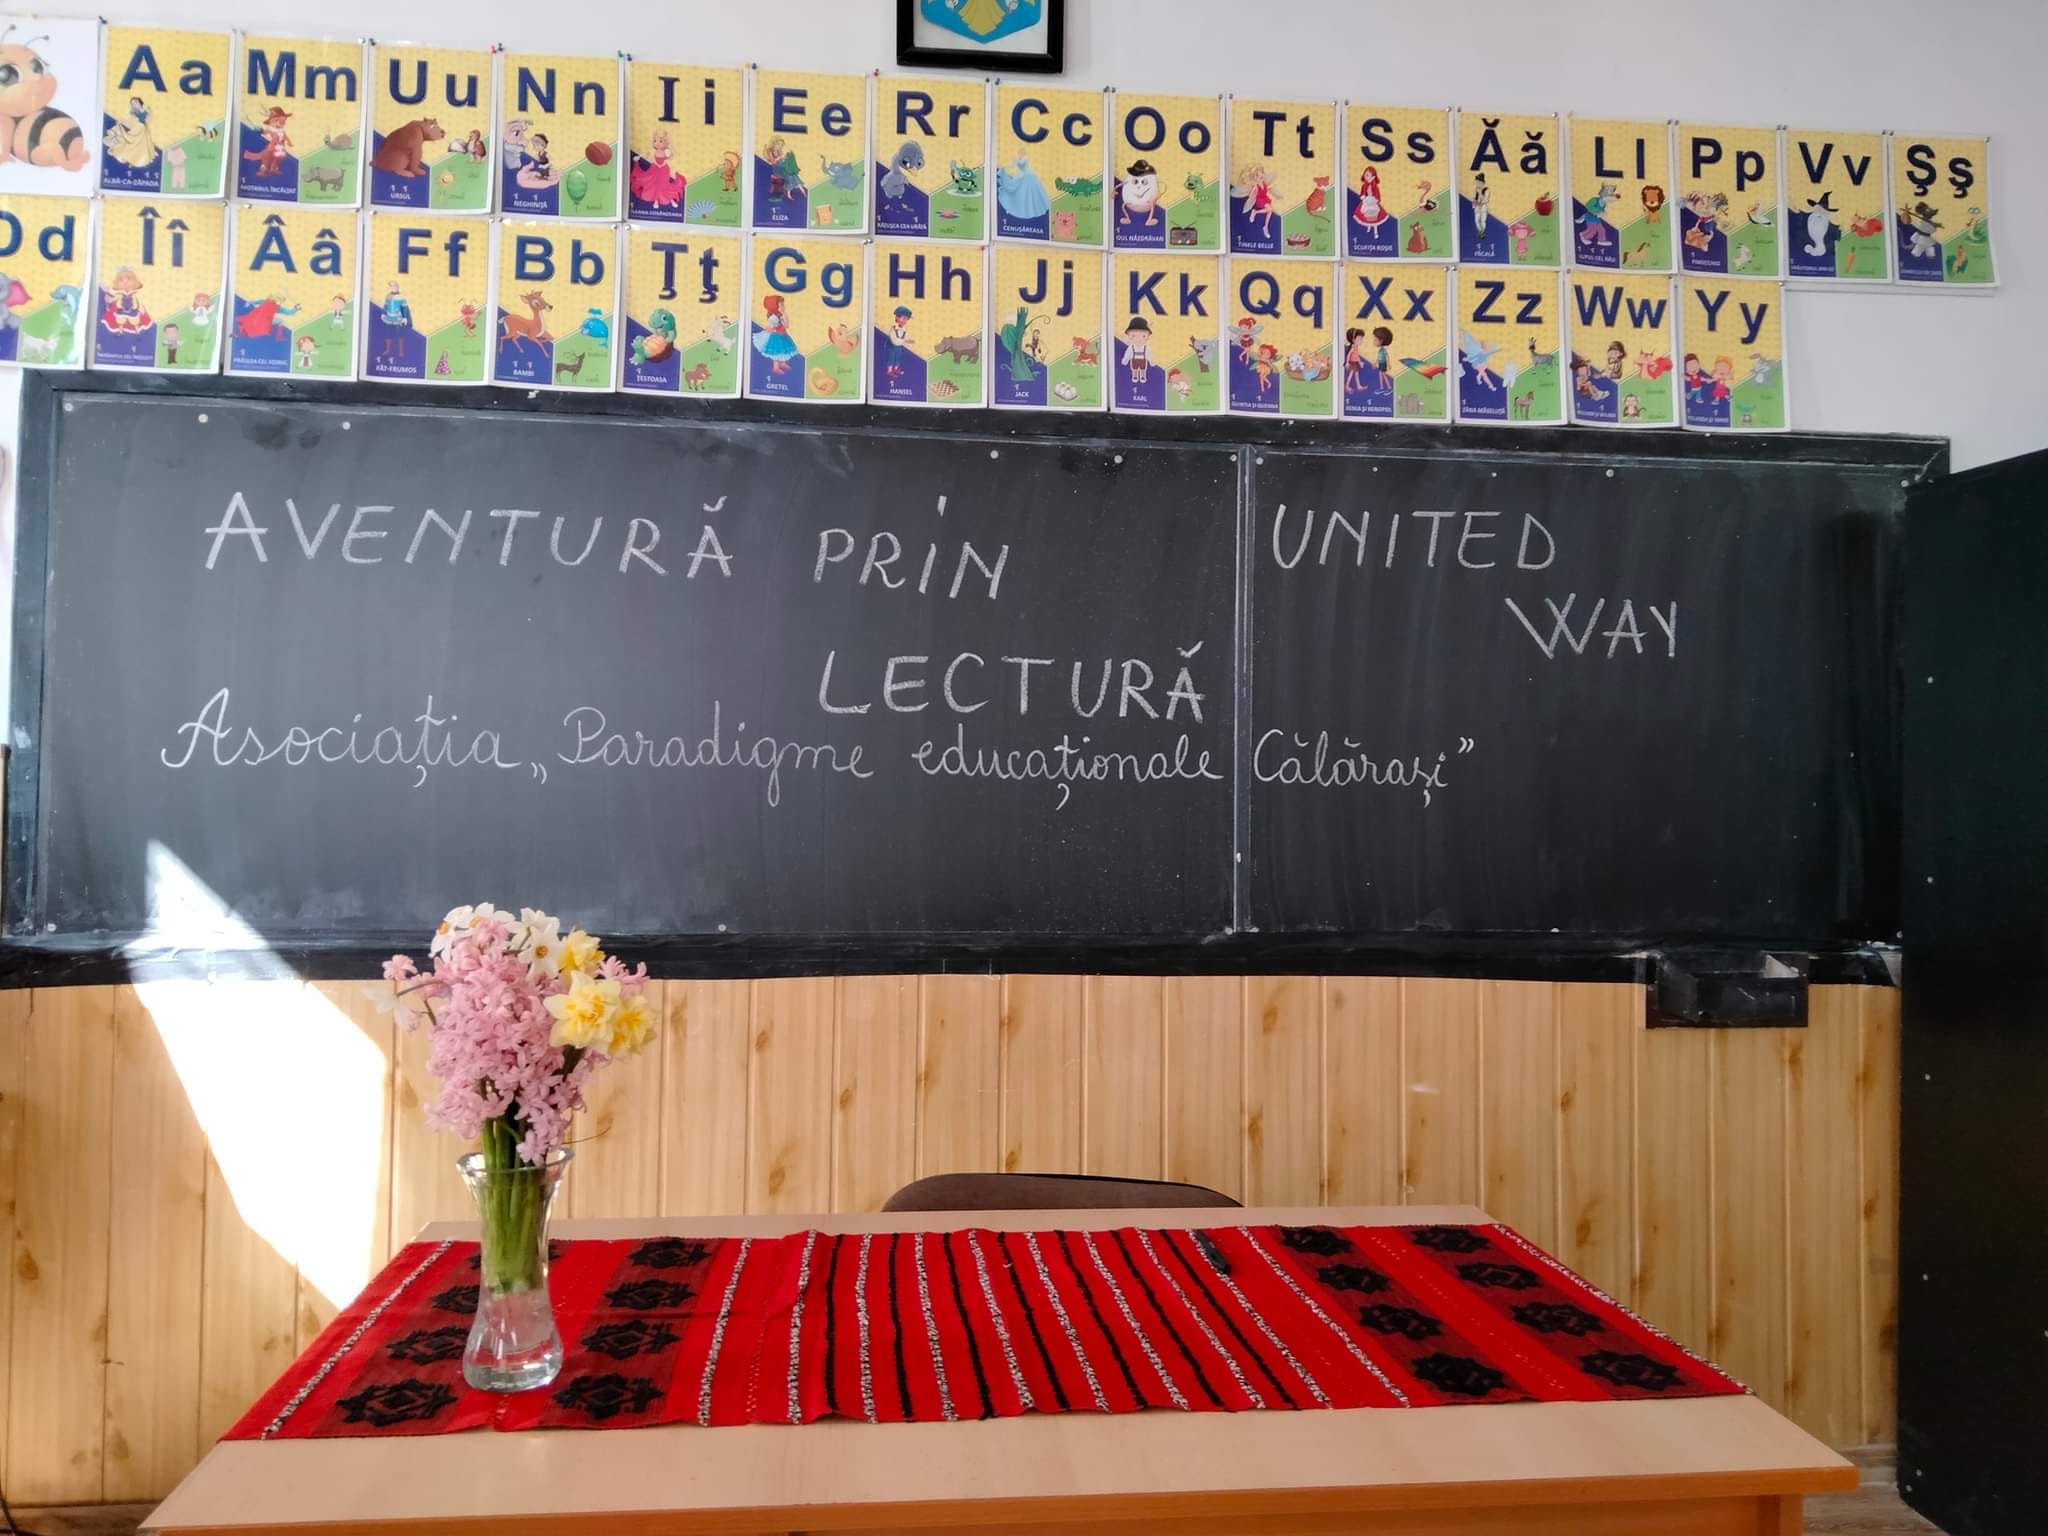 Aa Mm Uu Nn Ii Ee Rr Cc Oo Tt Ss Ăă Ll Pp Vv Şş
ALBĂ-CA-ZĂPADA MOTANUL ÎNCĂLȚAT URSUL NEGHINIȚĂ ILEANA COSÂNZEANA ELIZA RĂȚUȘCA CEA URÂTĂ CENUȘĂREASA OUL NĂZDRĂVAN TINKER BELLE SCUFIȚA ROȘIE PĂCALĂ LUPUL CEL RĂU PINOCCHIO
Dd Îî Ââ Ff Bb Ţţ Gg Hh Jj Kk Qq Xx Zz Ww Yy
FĂT-FRUMOS BAMBI ȚESTOASA GRETEL HANSEL JACK KARL ZÂNA MĂSELUȚĂ
AVENTURĂ PRIN
LECTURĂ
UNITED
WAY
Asociația „Paradigme educaționale Călărași”